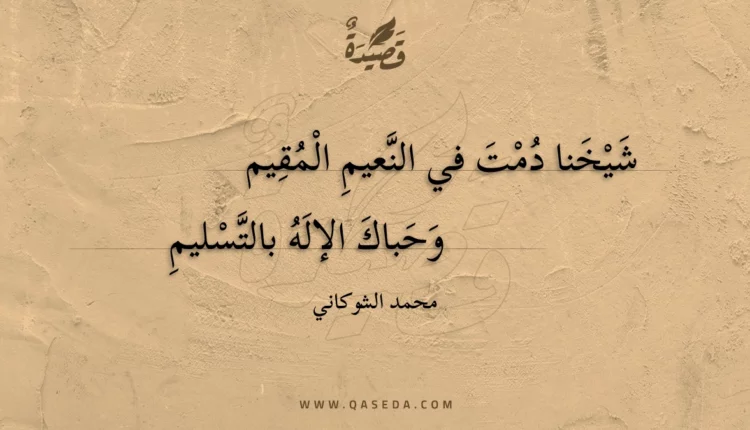 قَصِيْدَةٌ
شَيْخَنا دُمْتَ في النَّعيمِ الْمُقِيم
وَحَباكَ الإلَهُ بالتَّسْليمِ
محمد الشوكاني
WWW.QASEDA.COM